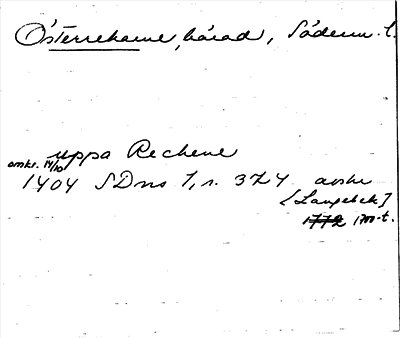 Österrekarne härad, Söderm. l.
uppa Rechene
omkr. 14/10
1404 SDns 1, s. 324 avskr
[Langebek]
1772 1700-t.